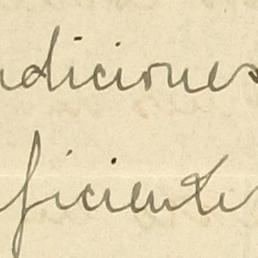 ndiciones
ficiente